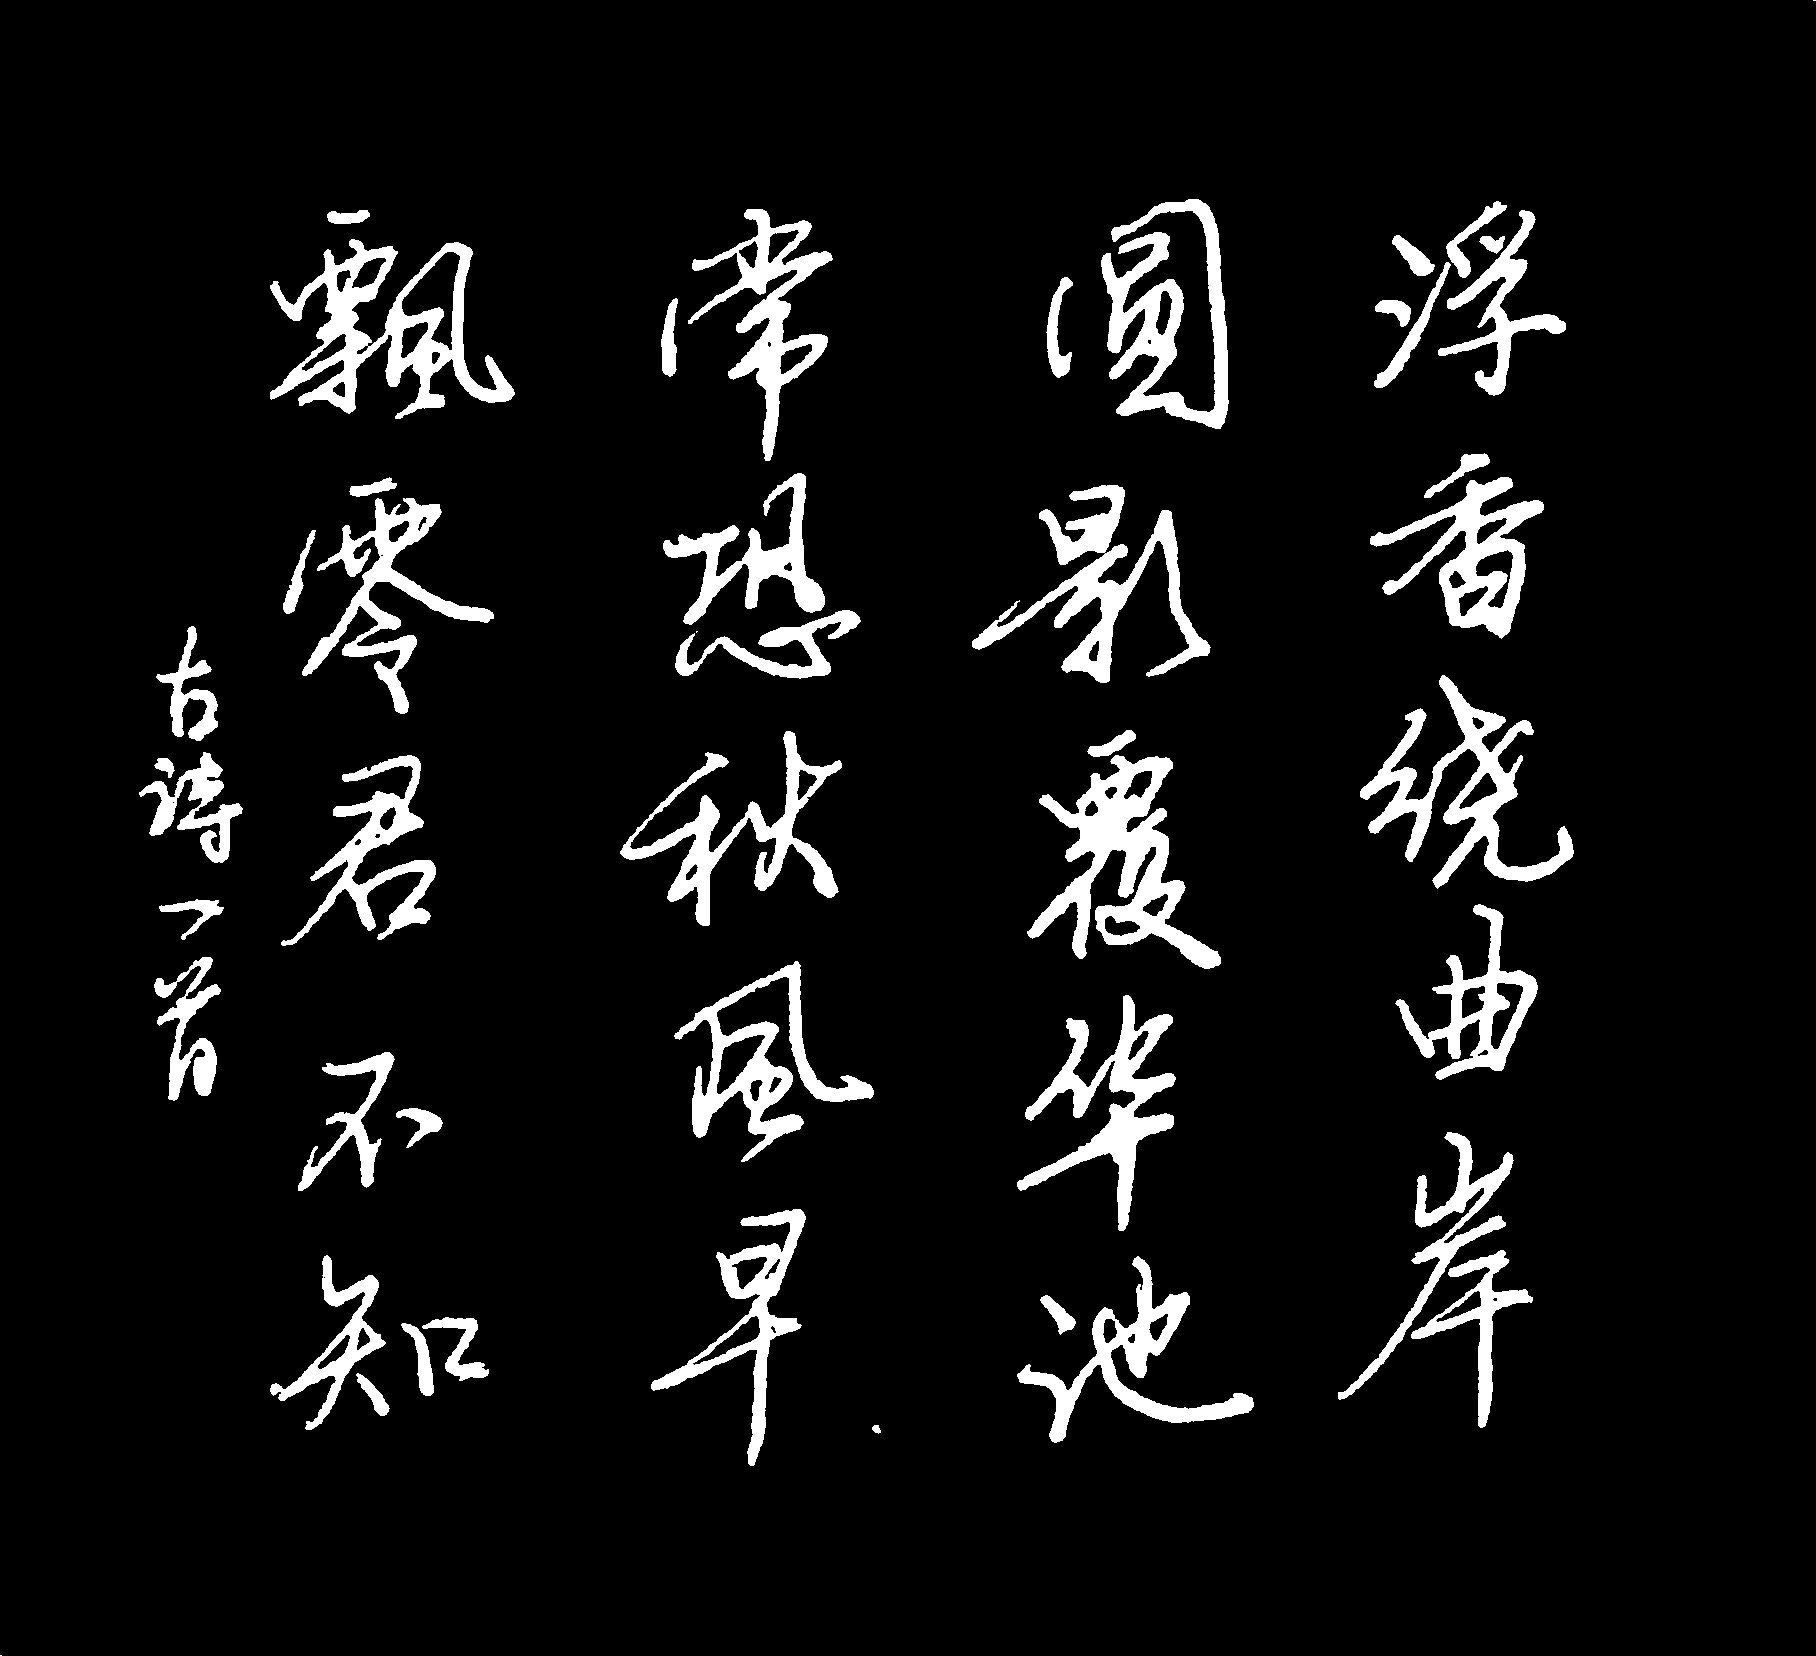 浮香绕曲岸
圆影覆华池
常恐秋风早
飘零君不知
古诗一首